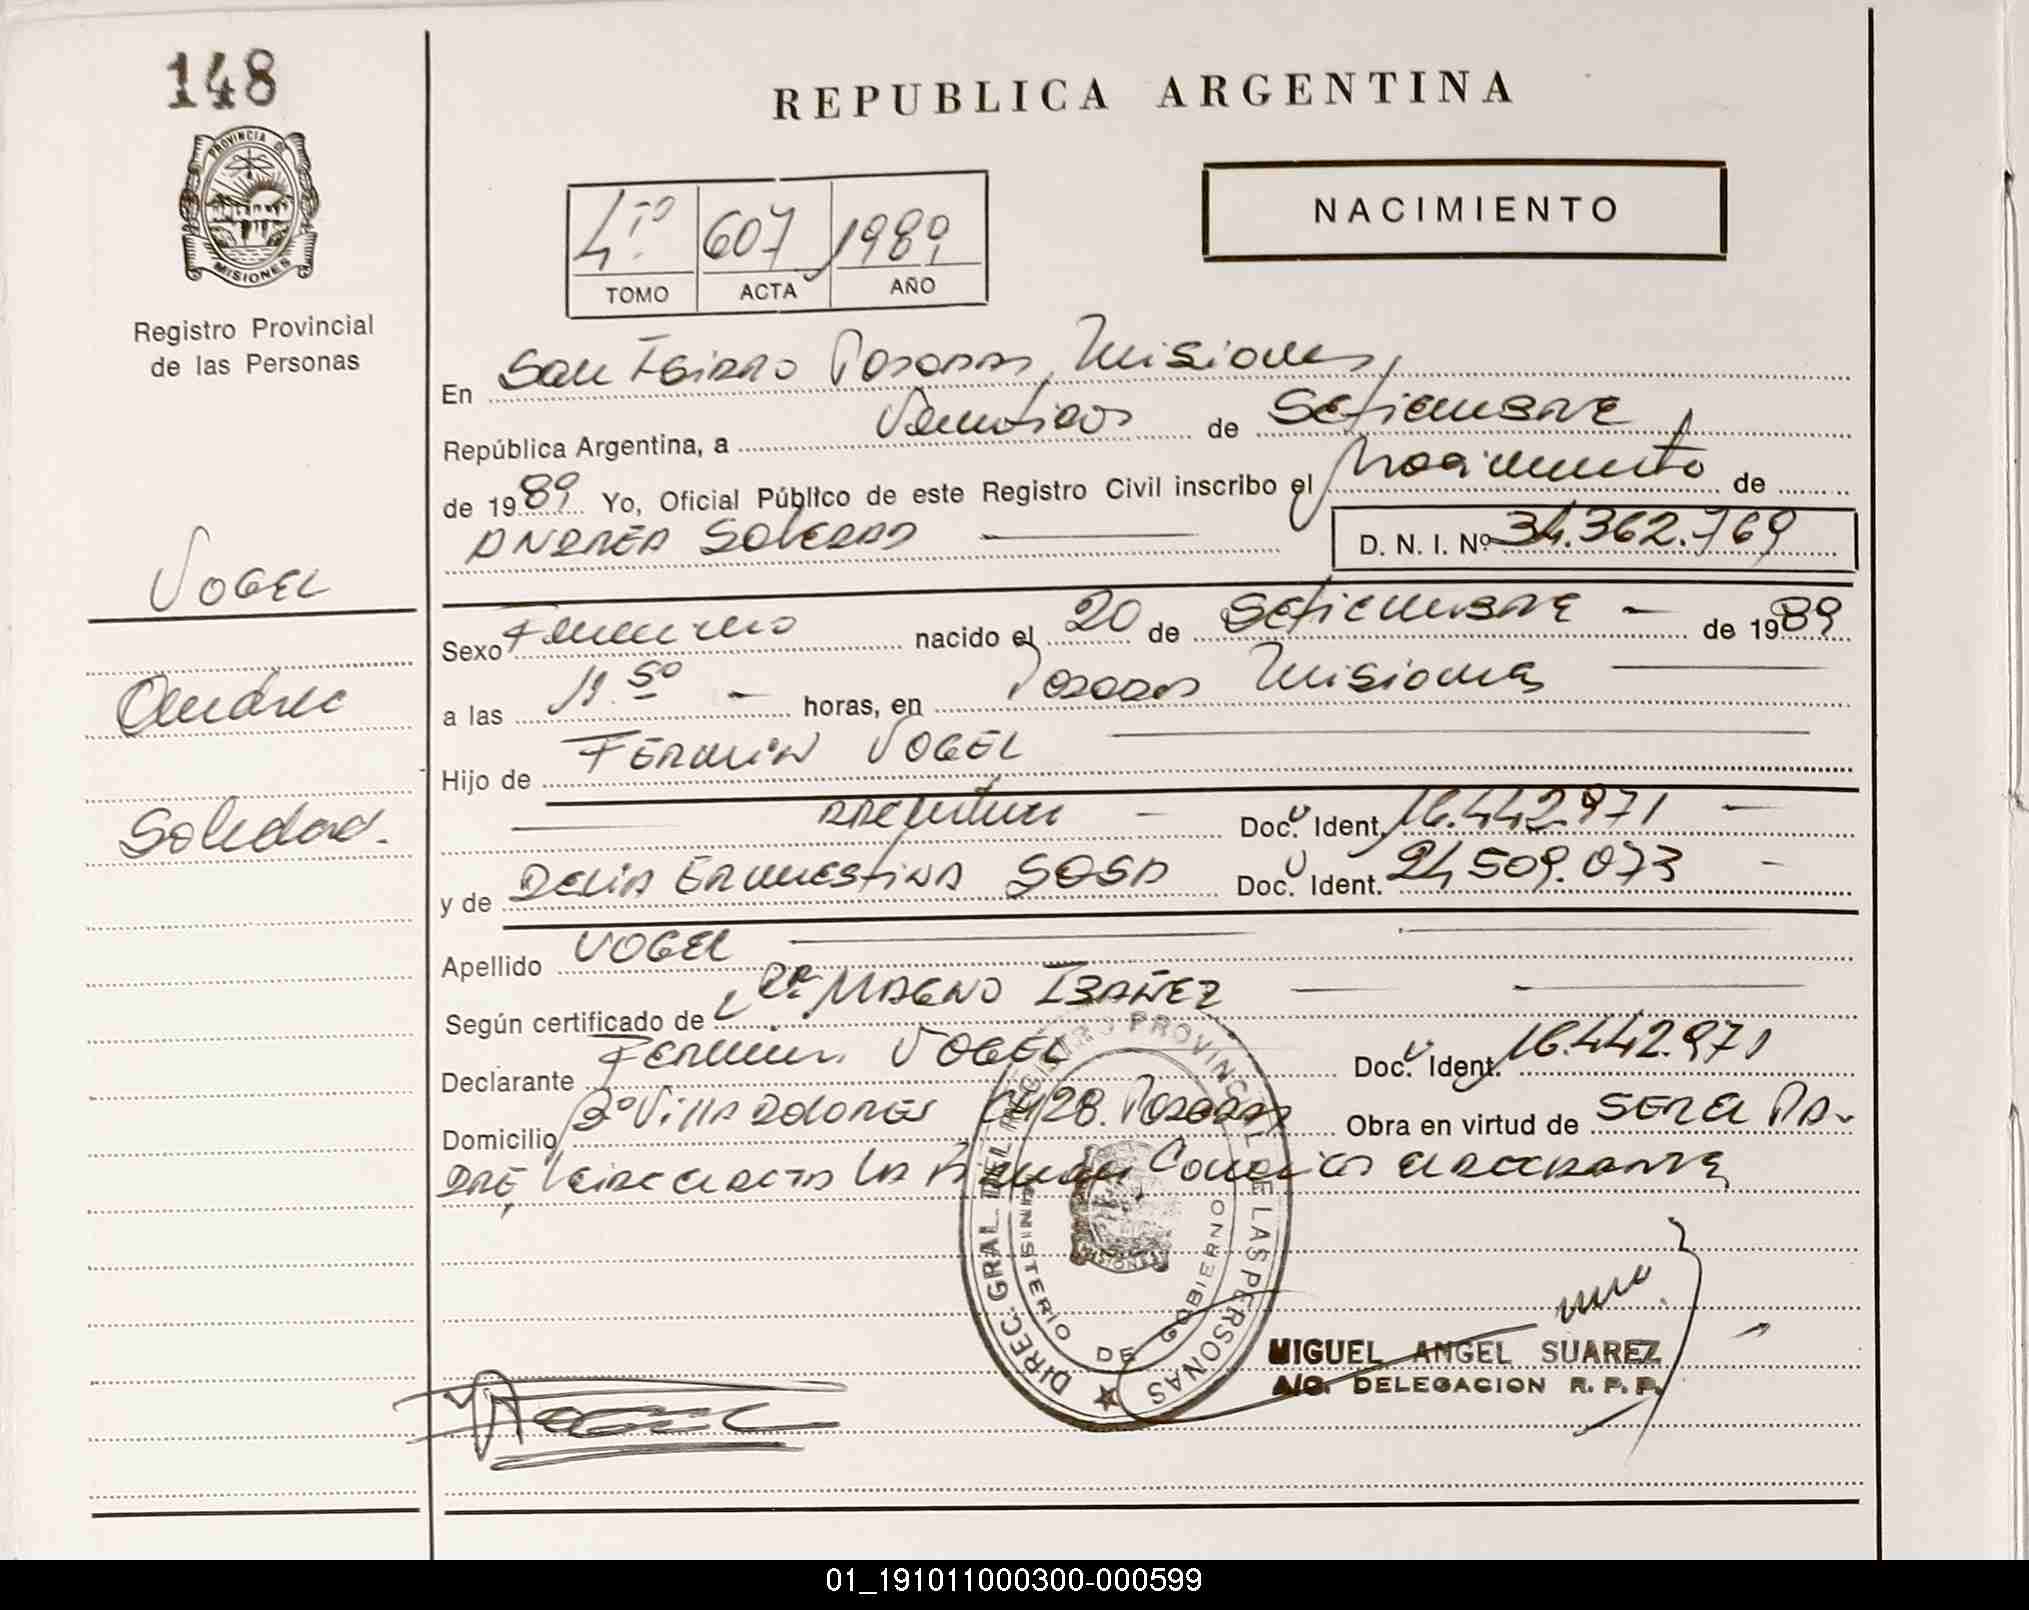 148
PROVINCIA DE
MISIONES
Registro Provincial
de las Personas
VOGEL
Andrea
Soledad.
REPUBLICA ARGENTINA
NACIMIENTO
4to 607 1989
TOMO ACTA AÑO
En San Isidro Posadas, Misiones,
República Argentina, a Veintidos de Setiembre
de 1989 Yo, Oficial Público de este Registro Civil inscribo el Nacimiento de
ANDREA SOLEDAD D. N. I. Nº 34.362.769
Sexo Femenino nacido el 20 de Setiembre - de 1989
a las 11.50 - horas, en Posadas Misiones
Hijo de FERMIN VOGEL
argentino - Doc. Ident. 16.442.971 -
y de DELIA ERNESTINA SOSA Doc. Ident. 24.509.073 -
Apellido VOGEL
Según certificado de Dr. MAGNO IBAÑEZ
Declarante Fermin VOGEL Doc. Ident. 16.442.971
Domicilio Bº Villa DOLORES C. 128. Posadas Obra en virtud de SER EL PA-
DRE Leida el acta la firman Conmigo el declarante
DIREC. GRAL. DEL REGISTRO PROVINCIAL DE LAS PERSONAS
MINISTERIO DE GOBIERNO
MISIONES
MIGUEL ANGEL SUAREZ
A/C. DELEGACION R. P. P.
01_191011000300-000599